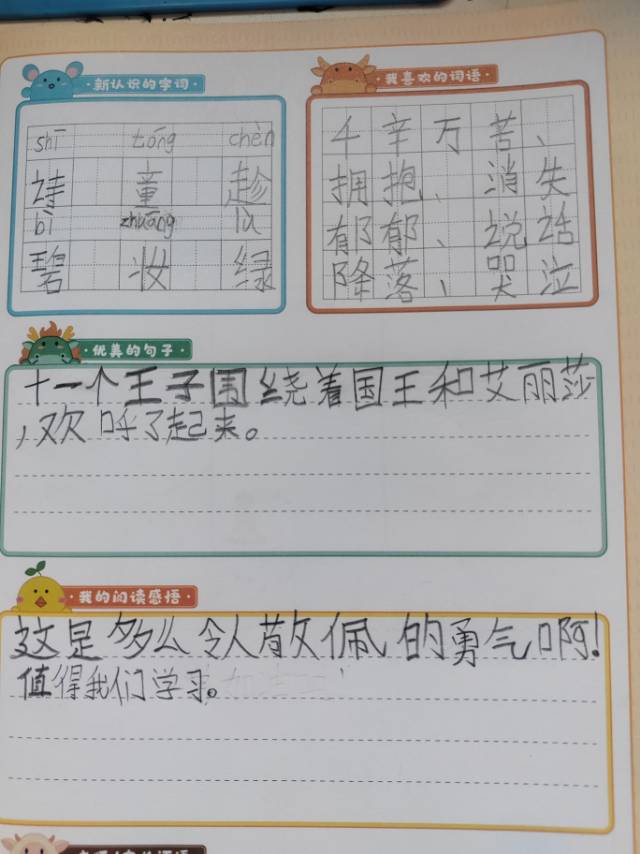 ·新认识的字词·
shī tóng chèn
诗 童 趁
bì zhuāng lù
碧 妆 绿
·我喜欢的词语·
千辛万苦、
拥抱、消失
郁郁、说话
降落、哭泣
·优美的句子·
十一个王子围绕着国王和艾丽莎
,欢呼了起来。
·我的阅读感悟·
这是多么令人敬佩的勇气啊!
值得我们学习。